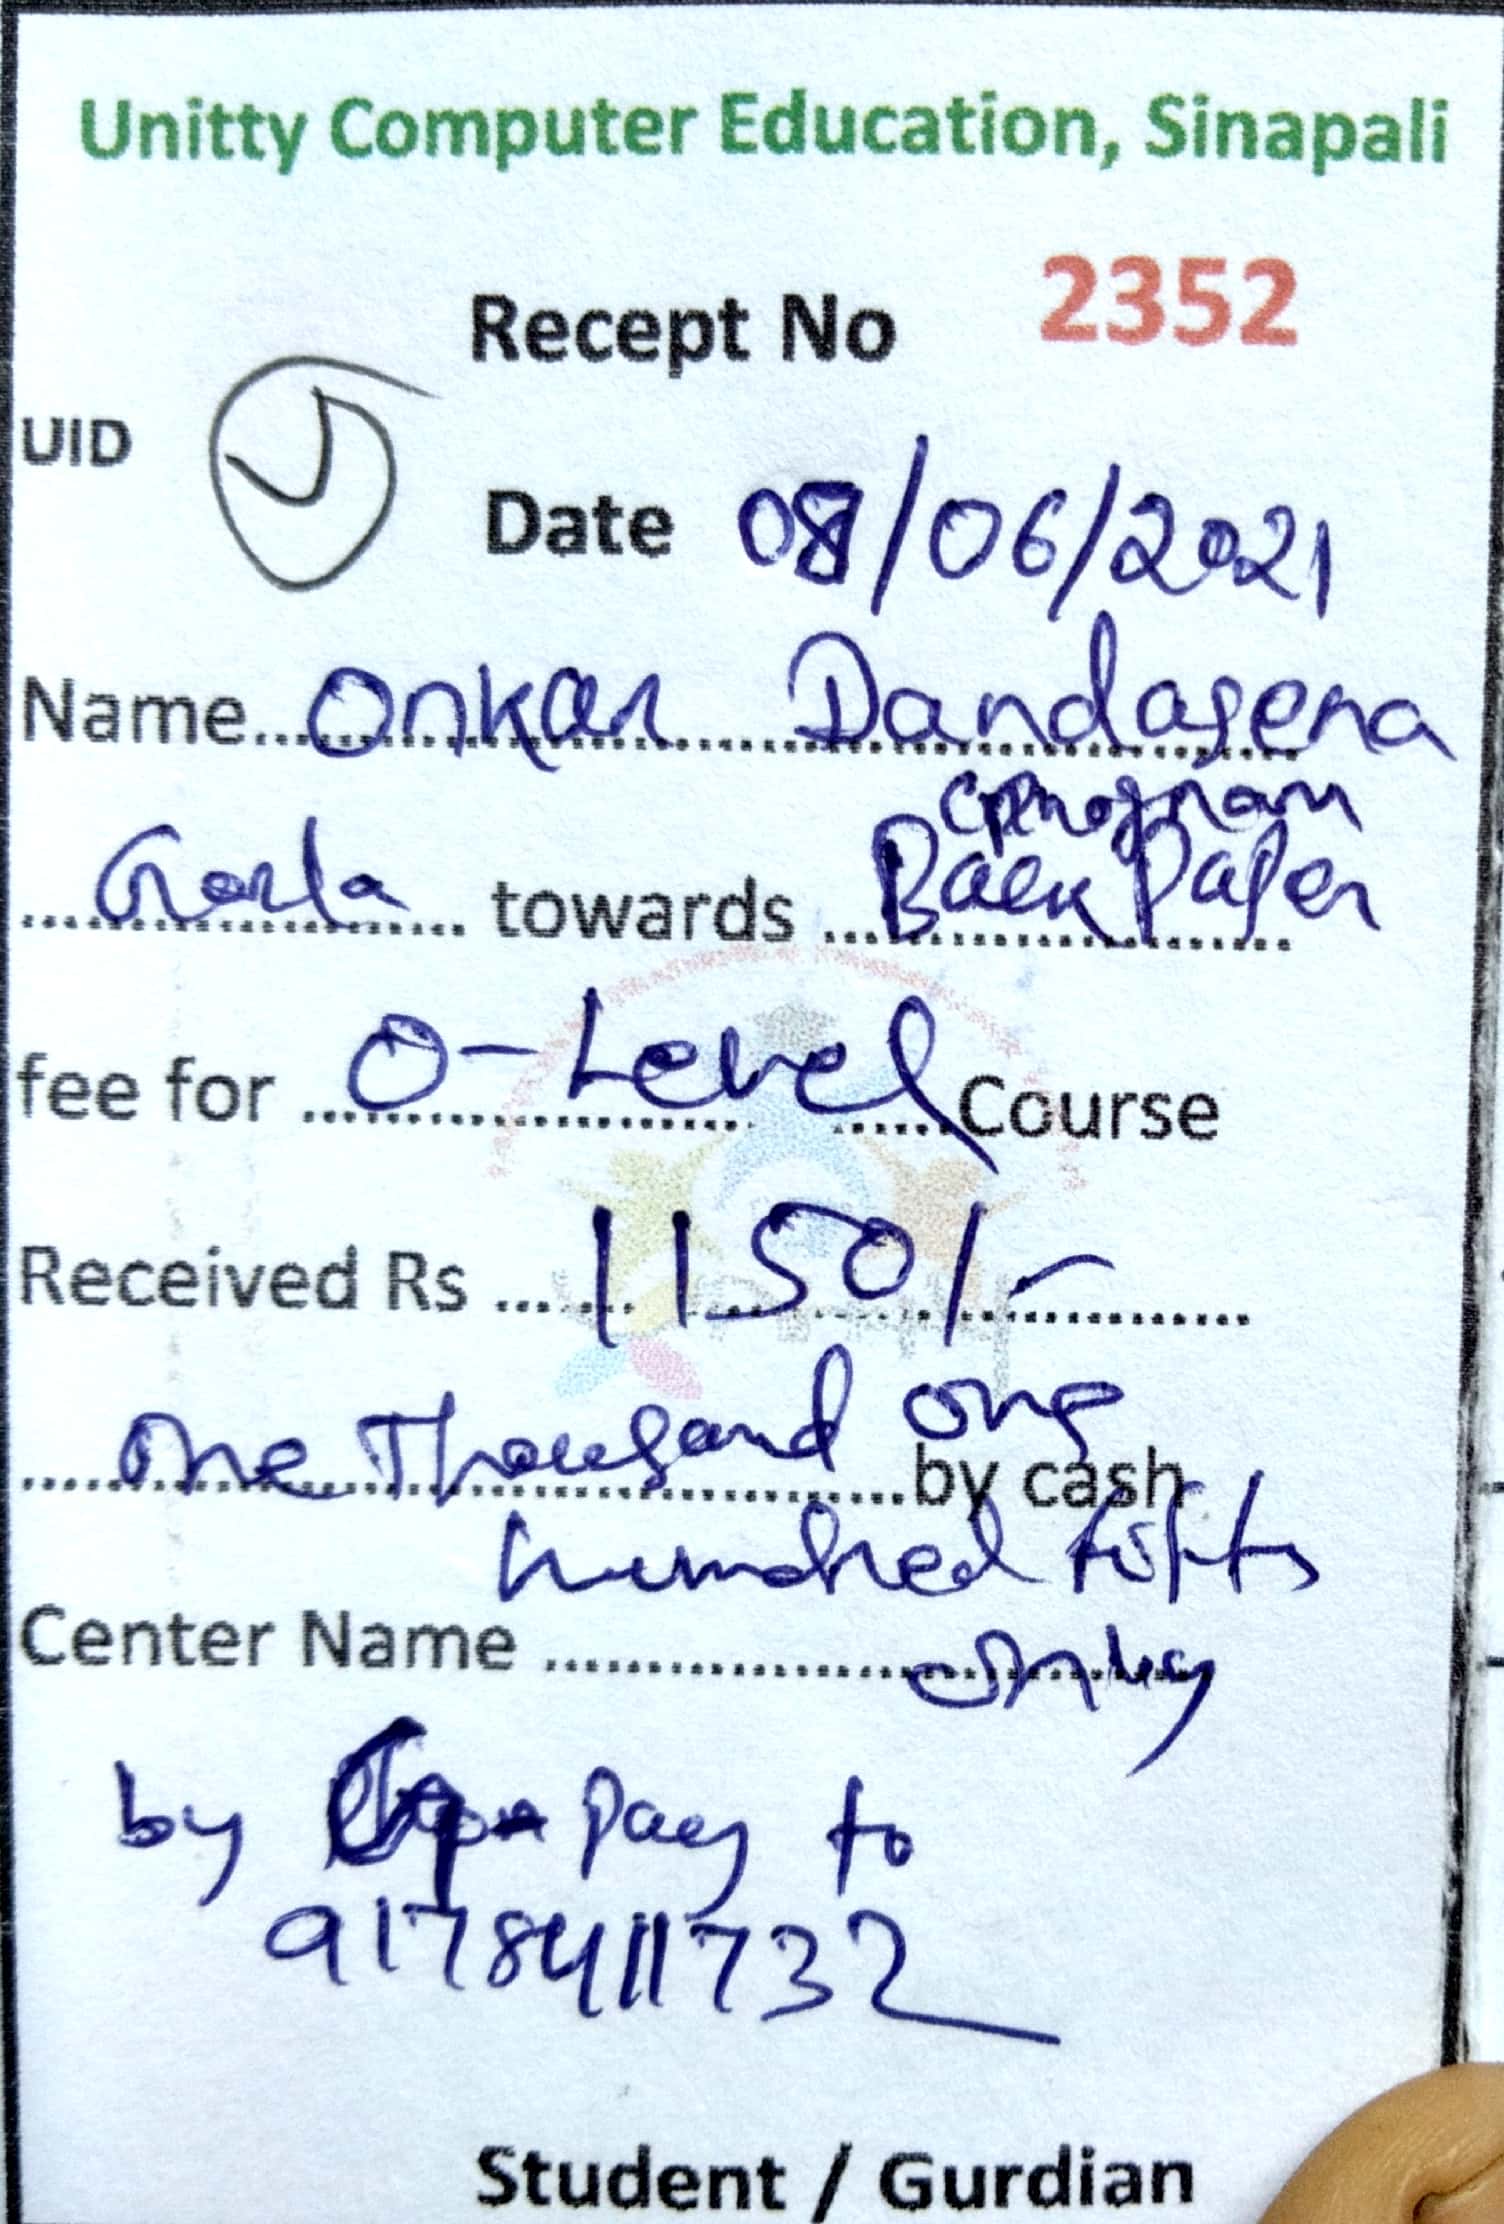 Unitty Computer Education, Sinapali
Recept No 2352
UID
Date 08/06/2021
Name Onkar Dandasena
program
towards Back Paper
fee for O-Level Course
Received Rs 1150/-
One Thousand one
by cash
hundred fifty
Center Name only
by Pay to
9178411732
Student / Gurdian